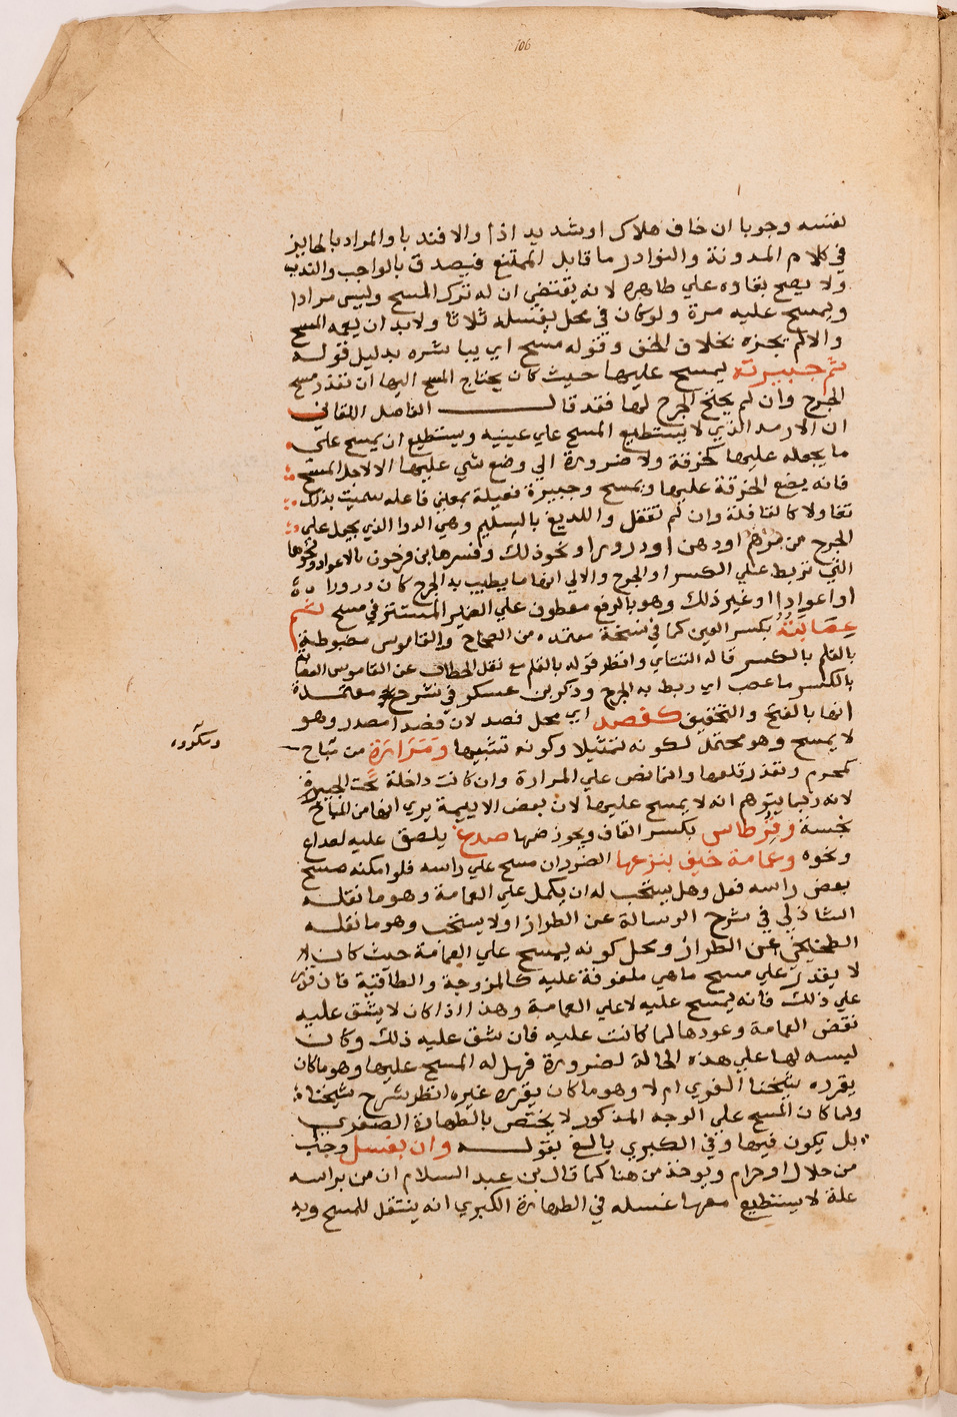 106
نفسه وجوبا ان خاف هلاك او شديد اذا والا فندبا والمراد بالجايز
في كلام المدونة والنوادر ما قابل الممتنع فيصدق بالواجب والندب
ولا يصح بقاوه علي ظاهره لانه يقتضي ان له ترك المسح وليس مرادا
ويمسح عليه مرة ولو كان في محل يغسله ثلاثا ولا بد ان يعمه المسح
والا لم يجزه بخلاف الخف وقوله مسح اي يباشره بدليل قوله
ثم جبيرته يمسح عليها حيث كان يحتاج المسح اليها ان تعذر مسح
الجرح وان لم يحتج الجرح لها فقد قال الفاضل اللقاني
ان الارمد الذي لا يستطيع المسح علي عينيه ويستطيع ان يمسح علي
ما يجعله عليها كخرقة ولا ضرورة الي وضع شي عليها الا لاجل المسح
فانه يضع الخرقة عليها ويمسح وجبيرة فعيلة بمعني فاعله سميت بذلك
تفاولا كالقافلة وان لم تقفل واللديغ بالسليم وهي الدوا الذي يجعل علي
الجرح من مرهم او دهن او درورا ونحو ذلك وفسرها ابن فرحون بالاعواد ونحوها
التي تربط علي الكسر او الجرح والاولي انها ما يطيب به الجرح كان درورا
او اعوادا او غير ذلك وهو بالرفع معطوف علي الضمير المستتر في مسح ثم
عصابته بكسر العين كما في نسخة معتمده من الصحاح والقاموس مضبوطة
بالقلم بالكسر قاله التتاي وانظر قوله بالقلم مع نقل الحطاب عن القاموس العصابة
بالكسر ما عصب اي ربط به الجرح وذكر بن عسكر في شرح معتمدة
انها بالفتح والتخفيف كفصد اي محل فصد لان فصدا مصدر وهو
لا يمسح وهو محتمل لكونه تمثيلا وكونه تشبيها ومرارة من مباح
كمحرم وتعذر قلعها وانما نص علي المرارة وان كانت داخلة تحت الجبيرة
لانه ربما يتوهم انه لا يمسح عليها لان بعض الايمة يري انها من المباح
نجسة وقرطاس بكسر القاف ويجوز ضمها صدغ يلصق عليه لصداع
ونحوه وعمامة خيف بنزعها الضرر ان مسح علي راسه فلو امكنه مسح
بعض راسه فعل وهل يستحب له ان يكمل علي العمامة وهو ما نقله
الشاذلي في شرح الرسالة عن الطراز او لا يستحب وهو ما نقله
الطخيخي عن الطراز ومحل كونه يمسح علي العمامة حيث كان
لا يقدر علي مسح ما هي ملفوفة عليه كالمزوجة والطاقية فان قدر
علي ذلك فانه يمسح عليه لا علي العمامة وهذا اذا كان لا يشق عليه
نقض العمامة وعودها لما كانت عليه فان شق عليه ذلك وكان
لبسه لها علي هذه الحالة لضرورة فهل له المسح عليها وهو ما كان
يقرره شيخنا الفوي ام لا وهو ما كان يقرره غيره انظر شرح شيخنا
ولما كان المسح علي الوجه المذكور لا يختص بالطهارة الصغري
بل يكون فيها وفي الكبري بالغ بقوله وان بغسل وجب
من حلال او حرام ويوخذ من هنا كما قال بن عبد السلام ان من براسه
علة لا يستطيع معها غسله في الطهارة الكبري انه ينتقل للمسح وبه